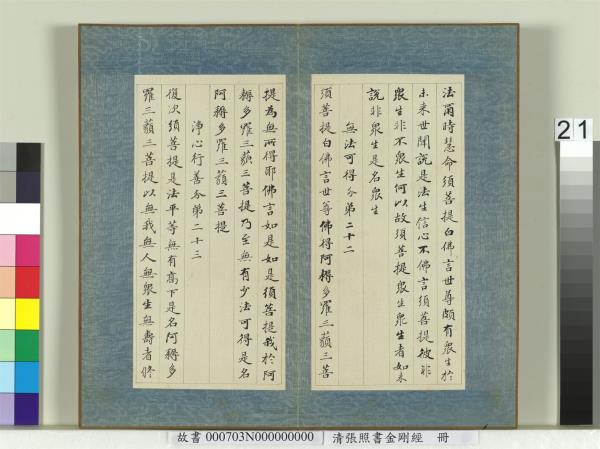 法爾時慧命須菩提白佛言世尊頗有衆生於
未来世聞說是法生信心不佛言須菩提彼非
衆生非不衆生何以故須菩提衆生衆生者如来
說非衆生是名衆生
無法可得分第二十二
須菩提白佛言世尊佛得阿耨多羅三藐三菩
提為無所得耶佛言如是如是須菩提我於阿
耨多羅三藐三菩提乃至無有少法可得是名
阿耨多羅三藐三菩提
淨心行善分第二十三
復次須菩提是法平等無有高下是名阿耨多
羅三藐三菩提以無我無人無衆生無壽者修
21
故書 000703N000000000 清張照書金剛經 冊